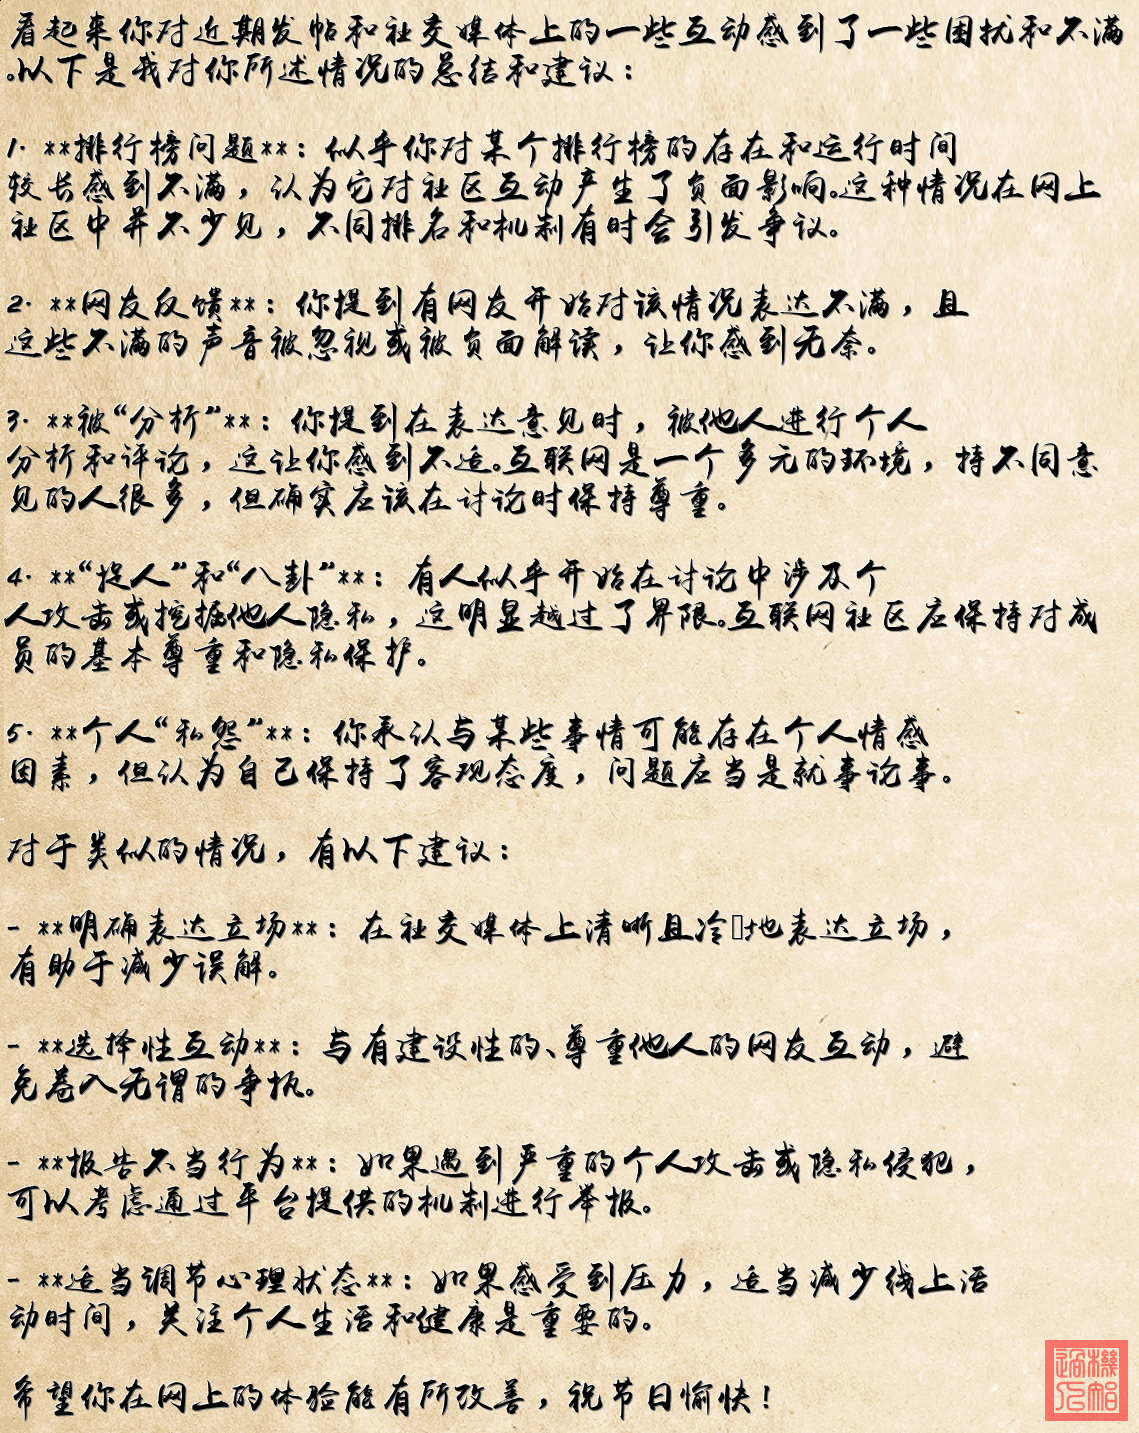 看起来你对近期发帖和社交媒体上的一些互动感到了一些困扰和不满
。以下是我对你所述情况的总结和建议：
1. **排行榜问题**：似乎你对某个排行榜的存在和运行时间
较长感到不满，认为它对社区互动产生了负面影响。这种情况在网上
社区中并不少见，不同排名和机制有时会引发争议。
2. **网友反馈**：你提到有网友开始对该情况表达不满，且
这些不满的声音被忽视或被负面解读，让你感到无奈。
3. **被“分析”**：你提到在表达意见时，被他人进行个人
分析和评论，这让你感到不适。互联网是一个多元的环境，持不同意
见的人很多，但确实应该在讨论时保持尊重。
4. **“捉人”和“八卦”**：有人似乎开始在讨论中涉及个
人攻击或挖掘他人隐私，这明显越过了界限。互联网社区应保持对成
员的基本尊重和隐私保护。
5. **个人“私怨”**：你承认与某些事情可能存在个人情感
因素，但认为自己保持了客观态度，问题应当是就事论事。
对于类似的情况，有以下建议：
- **明确表达立场**：在社交媒体上清晰且冷地表达立场，
有助于减少误解。
- **选择性互动**：与有建设性的、尊重他人的网友互动，避
免卷入无谓的争执。
- **报告不当行为**：如果遇到严重的个人攻击或隐私侵犯，
可以考虑通过平台提供的机制进行举报。
- **适当调节心理状态**：如果感受到压力，适当减少线上活
动时间，关注个人生活和健康是重要的。
希望你在网上的体验能有所改善，祝节日愉快！